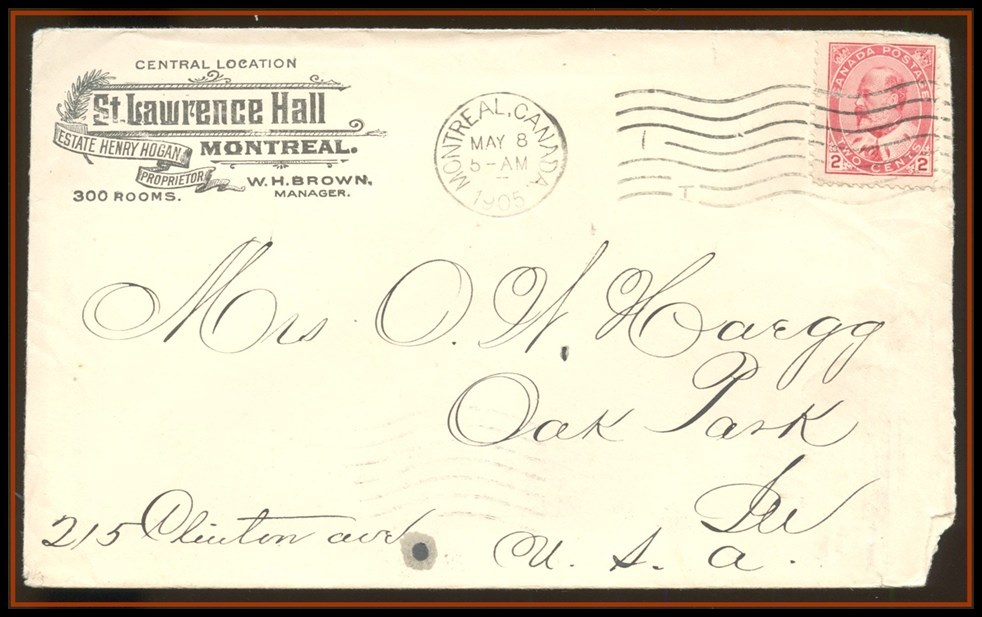 CENTRAL LOCATION
St. Lawrence Hall
ESTATE HENRY HOGAN
MONTREAL.
PROPRIETOR
W. H. BROWN,
MANAGER.
300 ROOMS.
MONTREAL, CANADA
MAY 8
5-AM
1905
I
I
CANADA POSTAGE
TWO CENTS
2 2
Mrs O. W. Haegg
Oak Park
Ill
215 Clinton ave
U. S. a.